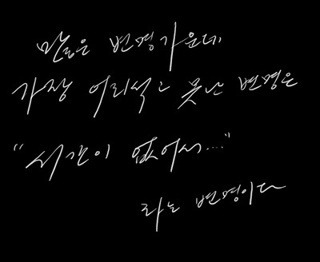 많은 변명 가운데
가장 어리석고 못난 변명은
"시간이 없어서...."
라는 변명이다